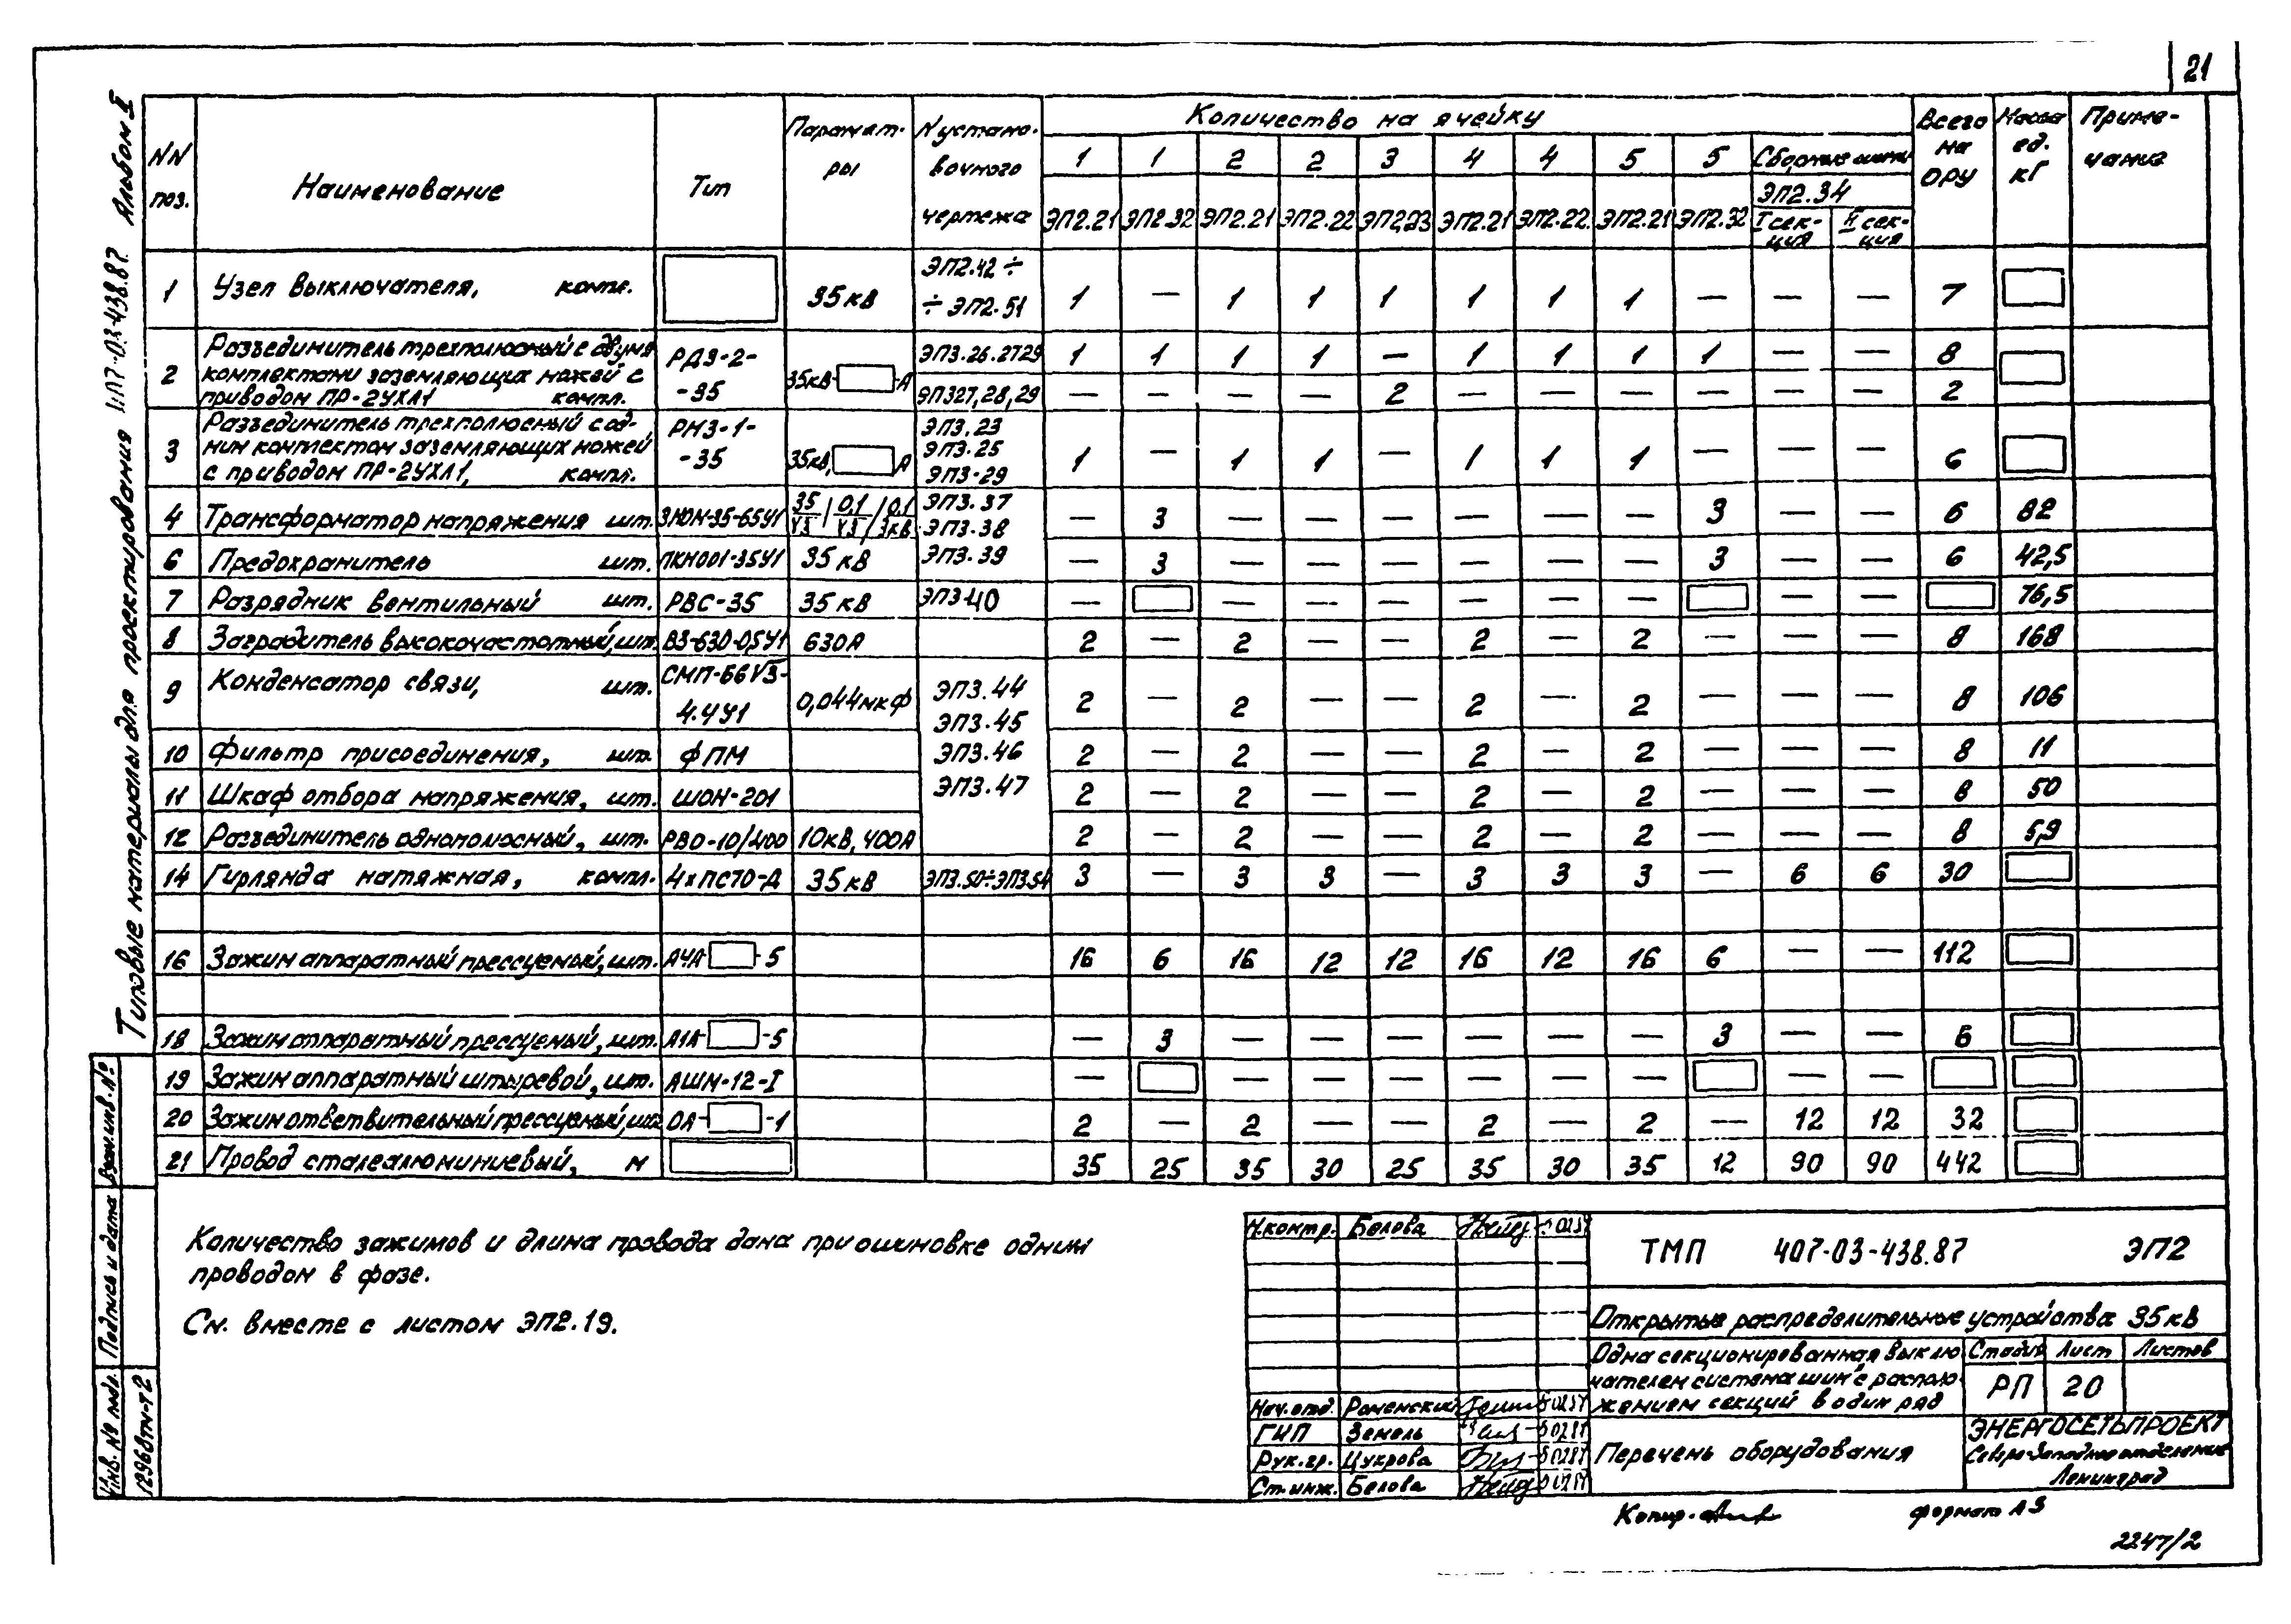 21
Типовые материалы для проектирования 407-03-438.87. Альбом II
NN поз. Наименование Тип Парамет-ры N устано-вочного чертежа Количество на ячейку Всего на ОРУ Масса ед. кг Приме-чание
1 1 2 2 3 4 4 5 5 Сборные шины
ЭП2.34
ЭП2.21 ЭП2.32 ЭП2.21 ЭП2.22 ЭП2.23 ЭП2.21 ЭП2.22 ЭП2.21 ЭП2.32 I сек-ция II сек-ция
1 Узел выключателя, компл. 35кВ ЭП2.42 ÷ ÷ ЭП2.51 1 — 1 1 1 1 1 1 — — — 7
2 Разъединитель трехполюсный с двумя комплектами заземляющих ножей с приводом ПР-2УХЛ1 компл. РДЗ-2-35 35кВ- А ЭП3.26.27.29 1 1 1 1 — 1 1 1 1 — — 8
ЭП3.27,28,29 — — — — 2 — — — — — — 2
3 Разъединитель трехполюсный с од-ним комплектом заземляющих ножей с приводом ПР-2УХЛ1, компл. РНЗ-1-35 35кВ, А ЭП3.23 ЭП3.25 ЭП3-29 1 — 1 1 — 1 1 1 — — — 6
4 Трансформатор напряжения шт. ЗНОМ-35-65У1 35/√3 / 0,1/√3 / 0,1/3кВ ЭП3.37 ЭП3.38 — 3 — — — — — — 3 — — 6 82
6 Предохранитель шт. ПКН001-35У1 35кВ ЭП3.39 — 3 — — — — — — 3 — — 6 42,5
7 Разрядник вентильный шт. РВС-35 35кВ ЭП3.40 — — — — — — — — — 76,5
8 Заградитель высокочастотный, шт. ВЗ-630-0,5У1 630А 2 — 2 — — 2 — 2 — — — 8 168
9 Конденсатор связи, шт. СМП-66√3-4.4У1 0,044мкФ ЭП3.44 ЭП3.45 2 — 2 — — 2 — 2 — — — 8 106
10 Фильтр присоединения, шт. ФПМ ЭП3.46 2 — 2 — — 2 — 2 — — — 8 11
11 Шкаф отбора напряжения, шт. ШОН-201 ЭП3.47 2 — 2 — — 2 — 2 — — — 8 50
12 Разъединитель однополюсный, шт. РВО-10/400 10кВ, 400А 2 — 2 — — 2 — 2 — — — 8 5,9
14 Гирлянда натяжная, компл. 4хПС70-Д 35кВ ЭП3.50÷ЭП3.54 3 — 3 3 — 3 3 3 — 6 6 30
16 Зажим аппаратный прессуемый, шт. А4А- -5 16 6 16 12 12 16 12 16 6 — — 112
18 Зажим аппаратный прессуемый, шт. А1А- -5 — 3 — — — — — — 3 — — 6
19 Зажим аппаратный штыревой, шт. АШМ-12-I — — — — — — — — —
20 Зажим ответвительный прессуемый, шт. ОА- -1 2 — 2 — — 2 — 2 — 12 12 32
21 Провод сталеалюминиевый, м 35 25 35 30 25 35 30 35 12 90 90 442
Количество зажимов и длина провода дана при ошиновке одним
проводом в фазе.
См. вместе с листом ЭП2.19.
Н.контр. Белова
ТМП 407-03-438.87 ЭП2
Открытые распределительные устройства 35кВ
Одна секционированная выклю-
чателем система шин с располо-
жением секций в один ряд
Стадия Лист Листов
РП 20
Нач.отд. Роменский
ГИП Земель
Рук.гр. Цукрова
Ст.инж. Белова
Перечень оборудования
ЭНЕРГОСЕТЬПРОЕКТ
Северо-Западное отделение
Ленинград
Копир.
формат А3
2247/2
Инв. № подл. Подпись и дата Взам.инв.№
12968тм-т2